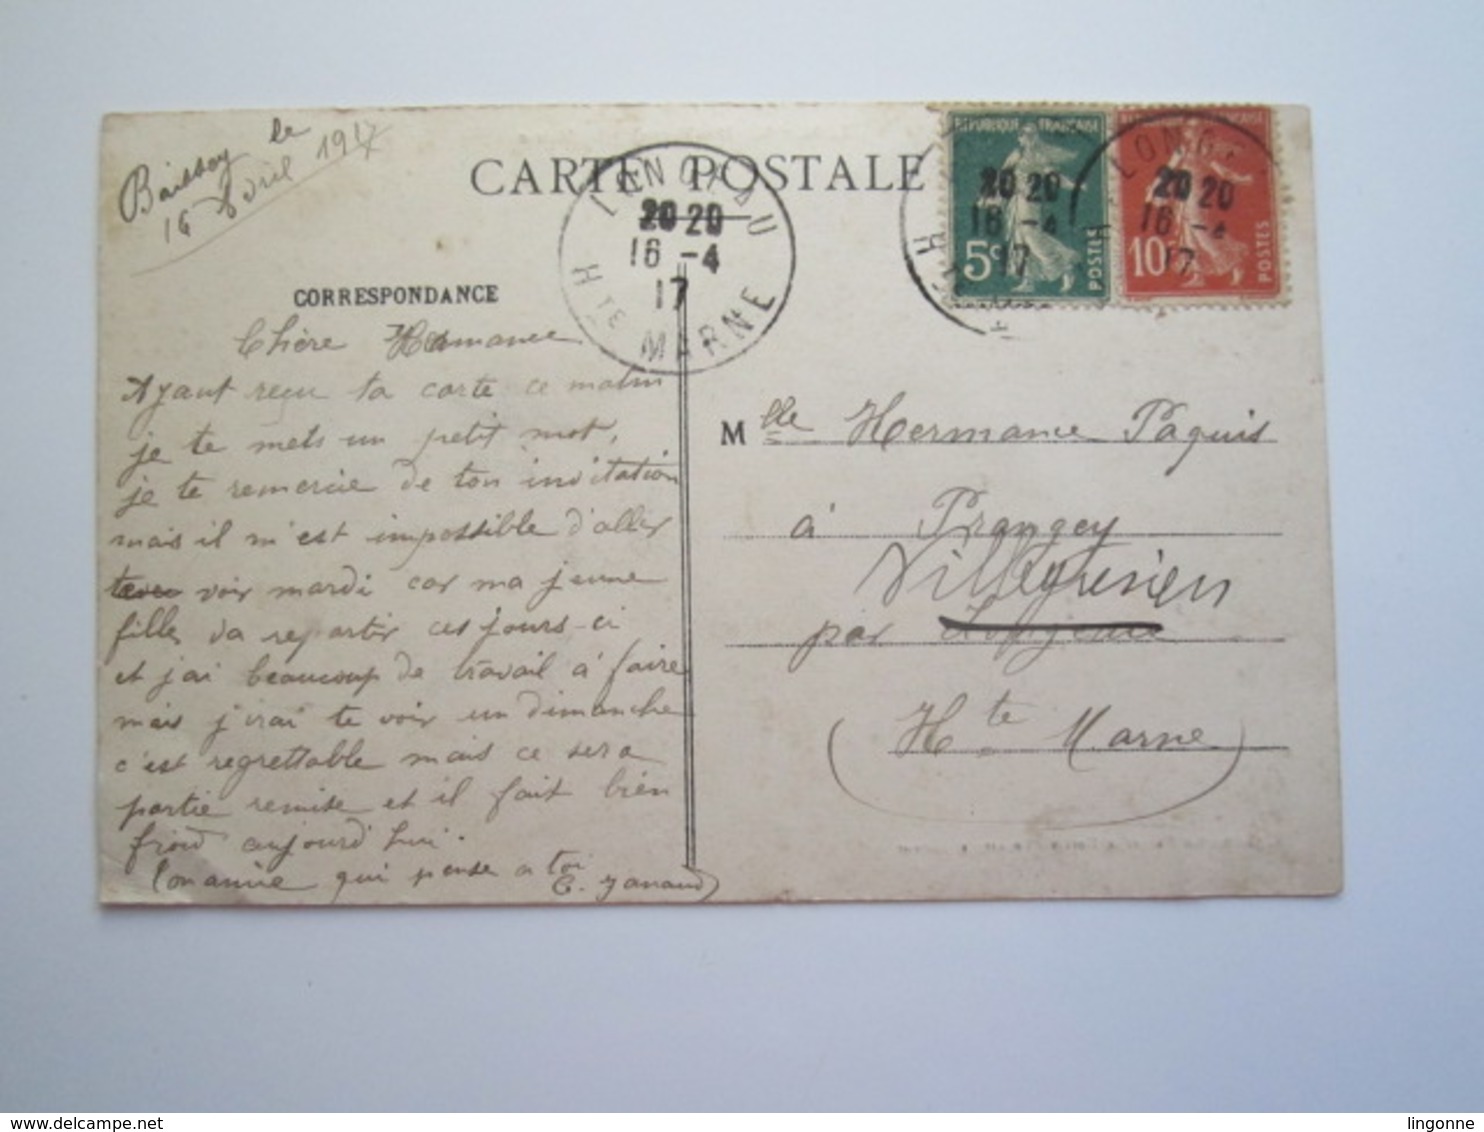 Baissey le
16 Avril 1917
CARTE POSTALE
LONGEAU
20 20
16 -4
17
HTE MARNE
REPUBLIQUE FRANÇAISE
5c
POSTES
REPUBLIQUE FRANÇAISE
10c
POSTES
LONGE
20 20
16 -4
17
CORRESPONDANCE
Chère Hermance
Ayant reçu ta carte ce matin
je te mets un petit mot,
je te remercie de ton invitation
mais il m'est impossible d'aller
te voir mardi car ma jeune
fille, va repartir ces jours-ci
et j'ai beaucoup de travail à faire
mais j'irai te voir un dimanche
c'est regrettable mais ce sera
partie remise et il fait bien
froid aujourd'hui.
Ton amie qui pense a toi
Mlle Hermance Paquis
à Prangey
Villegusien
par Longeau
(Hte Marne)
delcampe.net
lingonne